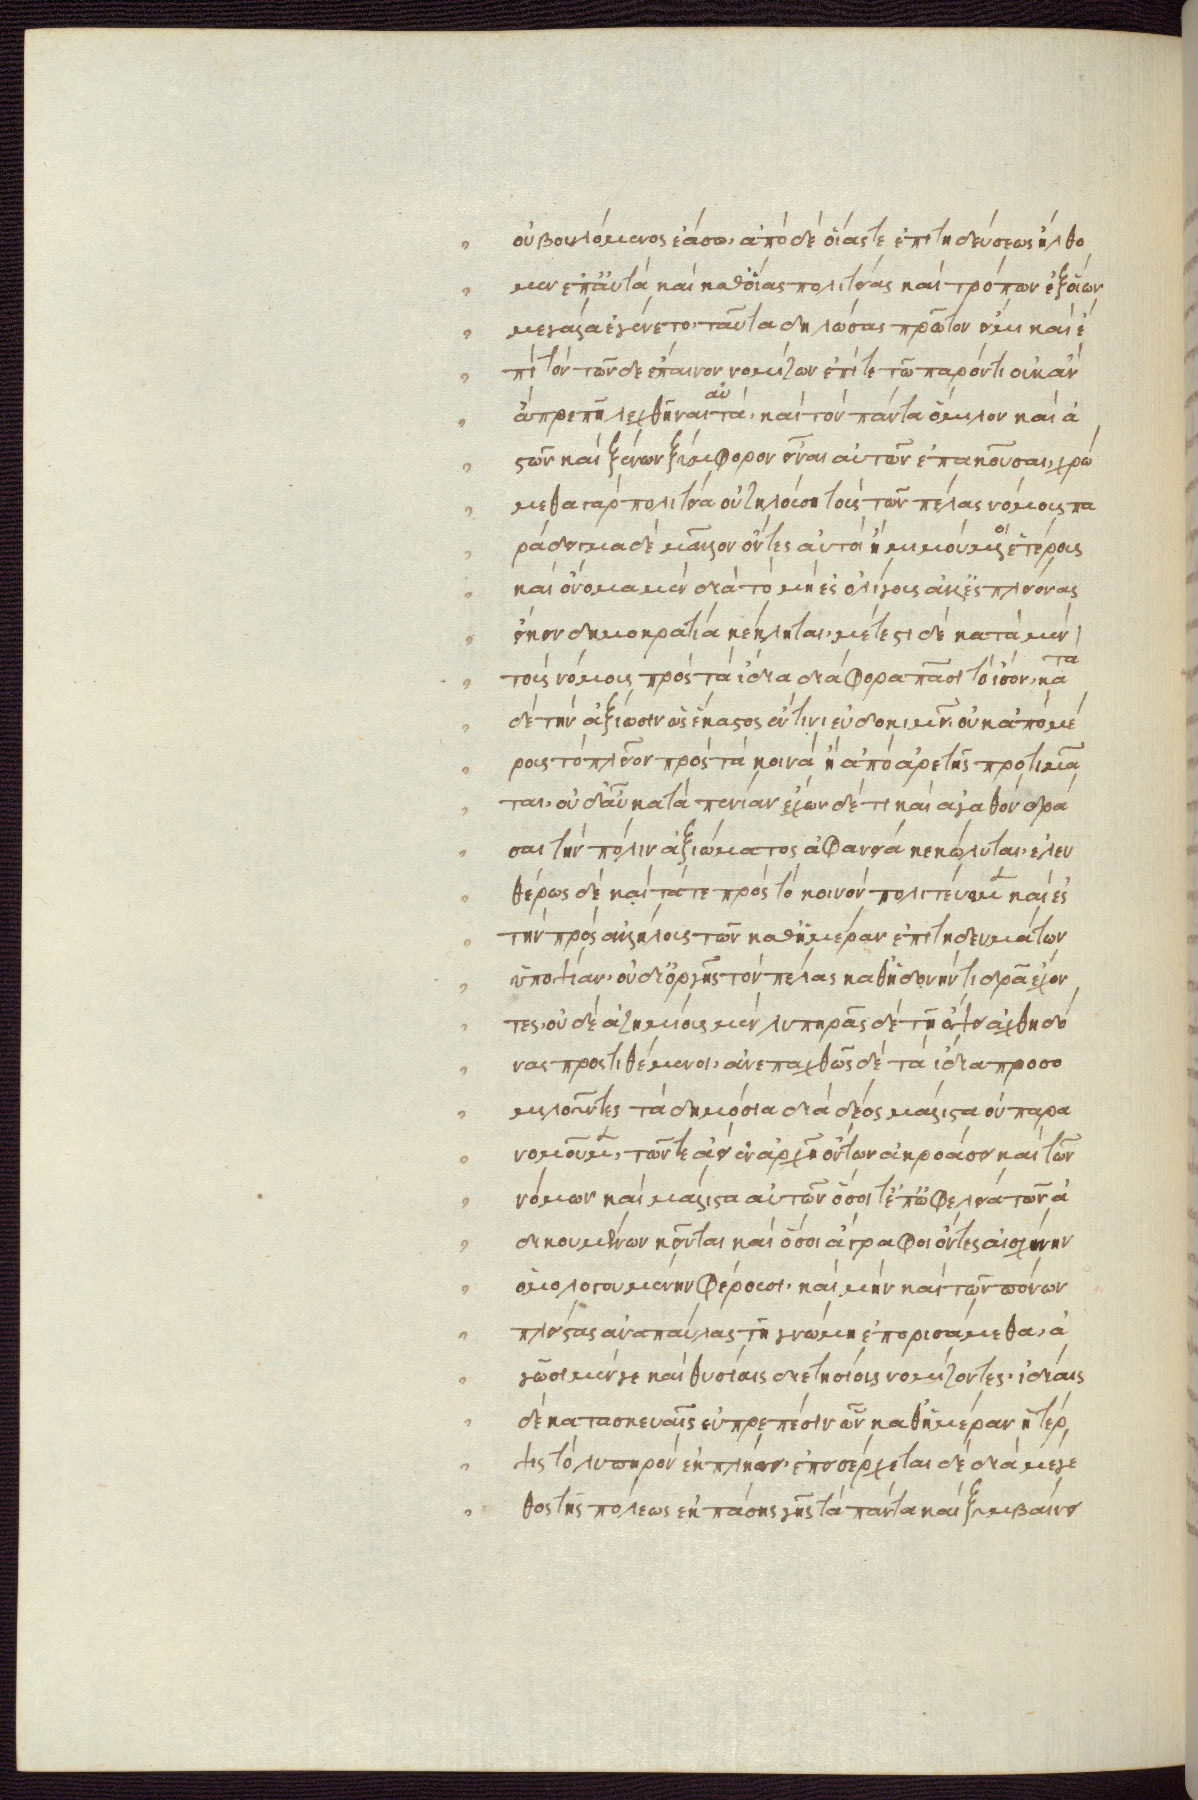 οὐ βουλόμενος ἐάσω, ἀπὸ δὲ οἵας τε ἐπιτηδεύσεως ἤλθο
μεν ἐπ' αὐτὰ καὶ καθ' οἵας πολιτείας καὶ τρόπων ἐξ οἵων
μεγάλα ἐγένετο, ταῦτα δηλώσας πρῶτον εἶμι καὶ ἐ
πὶ τὸν τῶνδε ἔπαινον νομίζων ἐπί τε τῷ παρόντι οὐκ ἂν
ἀπρεπῆ λεχθῆναι αὐτά, καὶ τὸν πάντα ὅμιλον καὶ ἀ
στῶν καὶ ξένων ξύμφορον εἶναι αὐτῶν ἐπακοῦσαι, χρώ
μεθα γὰρ πολιτείᾳ οὐ ζηλούσῃ τοὺς τῶν πέλας νόμους πα
ράδειγμα δὲ μᾶλλον ὄντες αὐτοὶ ἢ μιμούμενοι ἑτέρους
καὶ ὄνομα μὲν διὰ τὸ μὴ ἐς ὀλίγους ἀλλ' ἐς πλείονας
ἥκειν δημοκρατία κέκληται, μέτεστι δὲ κατὰ μὲν
τοὺς νόμους πρὸς τὰ ἴδια διάφορα πᾶσι τὸ ἴσον, κατὰ
δὲ τὴν ἀξίωσιν ὡς ἕκαστος ἔν τινι εὐδοκιμεῖ, οὐκ ἀπὸ μέ
ρους τὸ πλεῖον πρὸς τὰ κοινὰ ἢ ἀπὸ ἀρετῆς προτιμᾶ
ται, οὐδ' αὖ κατὰ πενίαν ἔχων δέ τι καὶ ἀγαθὸν δρᾶ
σαι τὴν πόλιν ἀξιώματος ἀφανείᾳ κεκώλυται, ἐλευ
θέρως δὲ καὶ τά τε πρὸς τὸ κοινὸν πολιτεύομεν καὶ ἐς
τὴν πρὸς ἀλλήλους τῶν καθ' ἡμέραν ἐπιτηδευμάτων
ὑποψίαν, οὐ δι' ὀργῆς τὸν πέλας καθ' ἡδονήν τι δρᾷ ἔχον
τες, οὐδὲ ἀζημίους μὲν λυπηρᾶς δὲ τῇ ὄψει ἀχθηδό
νας προστιθέμενοι, ἀνεπαχθῶς δὲ τὰ ἴδια προσο
μιλοῦντες τὰ δημόσια διὰ δέος μάλιστα οὐ παρα
νομοῦμεν, τῶν τε ἀεὶ ἐν ἀρχῇ ὄντων ἀκροάσει καὶ τῶν
νόμων καὶ μάλιστα αὐτῶν ὅσοι τε ἐπ' ὠφελείᾳ τῶν ἀ
δικουμένων κεῖνται καὶ ὅσοι ἄγραφοι ὄντες αἰσχύνην
ὁμολογουμένην φέρουσι, καὶ μὴν καὶ τῶν πόνων
πλείστας ἀναπαύλας τῇ γνώμῃ ἐπορισάμεθα, ἀ
γῶσι μέν γε καὶ θυσίαις διετησίοις νομίζοντες, ἰδίαις
δὲ κατασκευαῖς εὐπρεπέσιν ὧν καθ' ἡμέραν ἡ τέρ
ψις τὸ λυπηρὸν ἐκπλήσσει, ἐπεσέρχεται δὲ διὰ μέγε
θος τῆς πόλεως ἐκ πάσης γῆς τὰ πάντα καὶ ξυμβαίνει